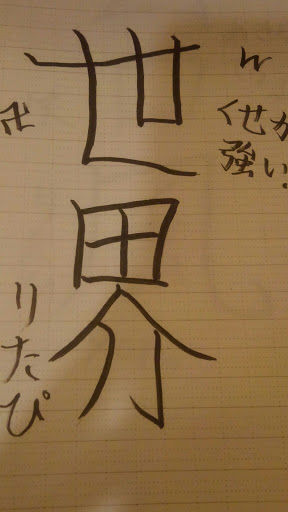 くせが
強い.
世界
卍
りたぴ